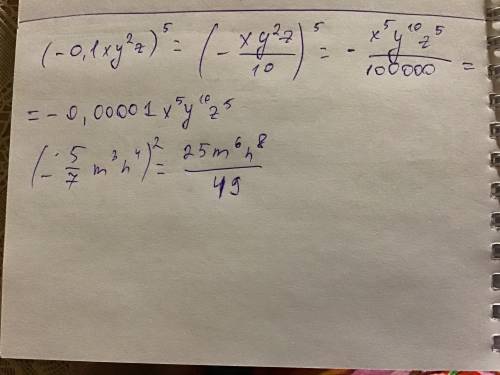 (-0,1xy²z)⁵ = (-xy²z/10)⁵ = -x⁵y¹⁰z⁵/100000 =
= -0,00001x⁵y¹⁰z⁵
(-5/7 m³n⁴)² = 25m⁶n⁸/49